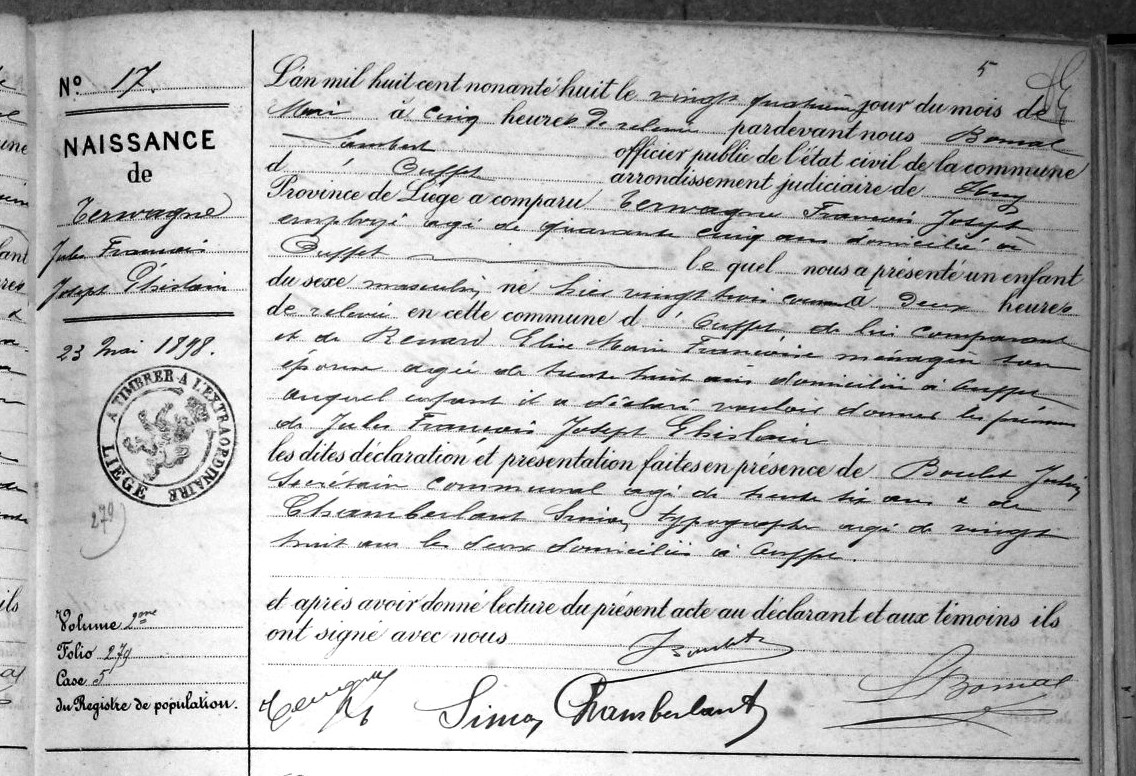 5
Nº 17
NAISSANCE
de
Terwagne
Jules François
Joseph Ghislain
23 Mai 1898.
A TIMBRER A L'EXTRAORDINAIRE
LIÈGE
279
Volume 2eme
Folio 279
Case 5
du Registre de population.
L'an mil huit cent nonante huit le vingt quatrième jour du mois de
Mai à cinq heures de relevée pardevant nous Bomal
Lambert officier public de l'état civil de la commune
d' Ouffet arrondissement judiciaire de Huy
Province de Liége a comparu Terwagne François Joseph
employé agé de quarante cinq ans domicilié à
Ouffet le quel nous a présenté un enfant
du sexe masculin, né hier vingt trois courant à deux heures
de relevée en cette commune d' Ouffet de lui comparant
et de Renard Elise Marie Françoise ménagère son
épouse agée de trente huit ans domiciliée à Ouffet
auquel enfant il a déclaré vouloir donner les prénoms
de Jules François Joseph Ghislain
les dites déclaration et présentation faites en présence de Boult
Secrétaire communal agé de trente six ans & de
Chamberlant Simon, typographe agé de vingt
huit ans les deux domiciliés à Ouffet.
et après avoir donné lecture du présent acte au déclarant et aux témoins ils
ont signé avec nous
Boult
Terwagne
Simon Chamberlant
L Bomal